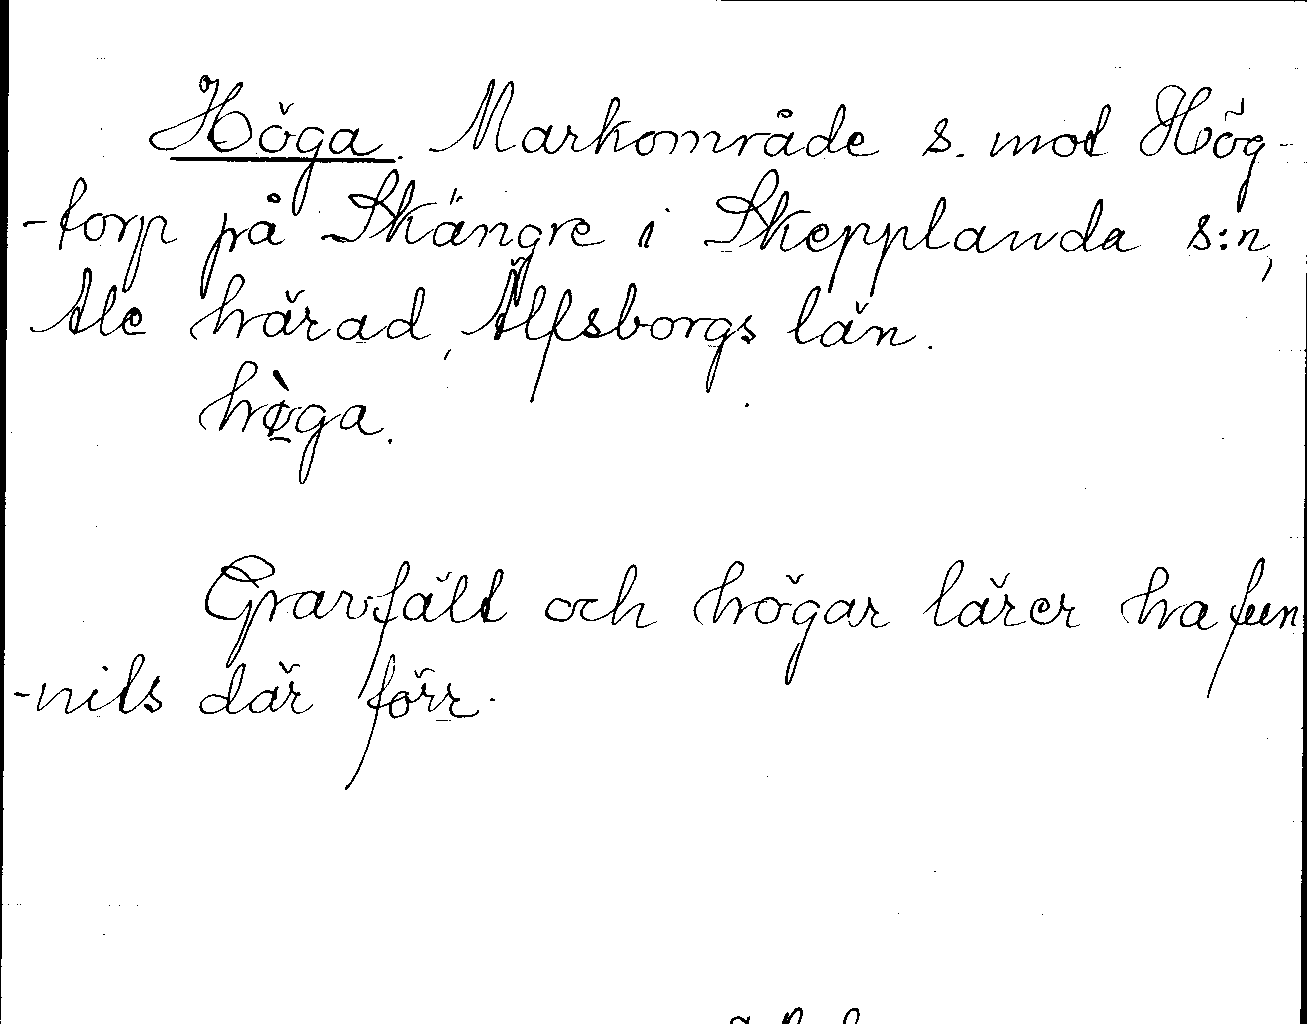 Höga. Markområde s. mot Hög-
-torp på Skängre i Skepplanda s:n,
Ale härad, Älfsborgs län.
hø̀ga.
Gravfält och högar lärer ha fun
-nits där förr.